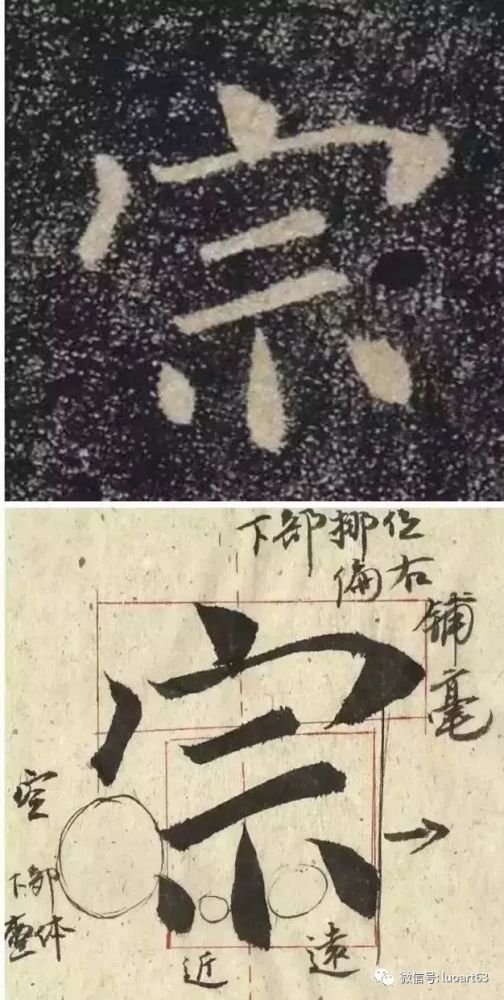 宗
下部挪位
偏右
铺毫
宗
空
下部
整体
近
遠
微信号: luoart63